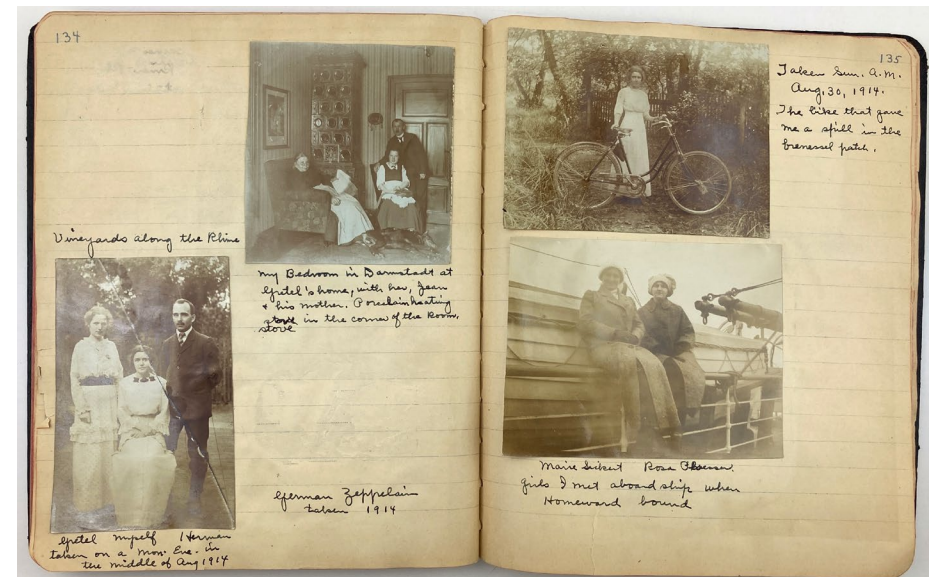 134
Vineyards along the Rhine
My Bedroom in Darmstadt at
Gretel's home, with her, Jean
& his mother. Porcelain heating
stove in the corner of the Room.
stove
Gretel myself Herman
taken on a Mon. Eve. in
the middle of Aug 1914
German Zeppelin
taken 1914
135
Taken Sun. A.M.
Aug. 30, 1914.
The bike that gave
me a spill in the
brenessel patch.
Marie Rosa
girls I met aboard ship when
Homeward bound